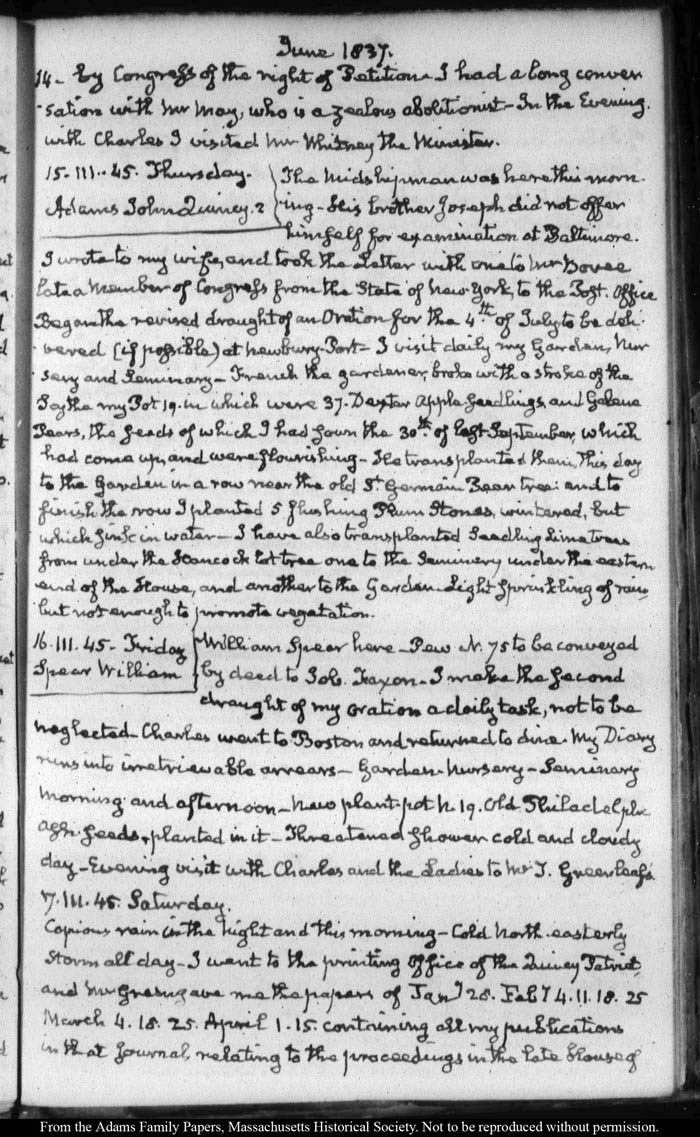 June 1837.
14 - by Congress of the right of Petition. I had a long conver
sation with Mr May, who is a zealous abolitionist - In the Evening.
with Charles I visited Mr Whitney the Minister.
15. III. 45. Thursday. The Midshipman was here this morn.
Adams John Quincy. 2 ing - His brother Joseph did not offer
himself for examination at Baltimore.
I wrote to my wife, and took the Letter with one to Mr Bovee
late a Member of Congress from the State of New York, to the Post. Office
Began the revised draught of an Oration for the 4th of July to be deli
vered (if possible) at Newbury-Port - I visit daily my Garden, Nur
sery and Seminary - French the gardener, broke with a stroke of the
Scythe my Pot 19. in which were 37. Dexter apple seedlings, and
Pears, the seeds of which I had sown the 30th of last September, which
had come up, and were flourishing - He transplanted them, this day
to the Garden in a row near the old St Germain Pear tree: and to
finish the row I planted 5 Flushing Plum Stones, wintered, but
which sink in water - I have also transplanted Seedling
from under the Hancock lot tree one to the Seminary under the eastern
end of the House, and another to the Garden - Light Sprinkling of rain,
but not enough to promote vegetation.
16. III. 45. Friday William Spear here - Pew N. 75 to be conveyed
Spear William by deed to Job. Faxon - I make the second
draught of my oration a daily task, not to be
neglected - Charles went to Boston and returned to dine. My Diary
runs into irretrievable arrears - Garden. Nursery - Seminary
morning and afternoon - New plant-pot N. 19. Old Philadelphi
ash. seeds, planted in it - Threatened shower cold and cloudy
day - Evening visit with Charles and the Ladies to Mr T. Greenleaf's.
7. III. 45. Saturday.
Copious rain in the night and this morning - Cold North-easterly
Storm all day - I went to the printing Office of the Quincy Patriot,
and Mr Green gave me the papers of Jany 28. Feby 4. 11. 18. 25
March 4. 18. 25. April 1. 15. containing all my publications
in that Journal, relating to the proceedings in the late House of
From the Adams Family Papers, Massachusetts Historical Society. Not to be reproduced without permission.